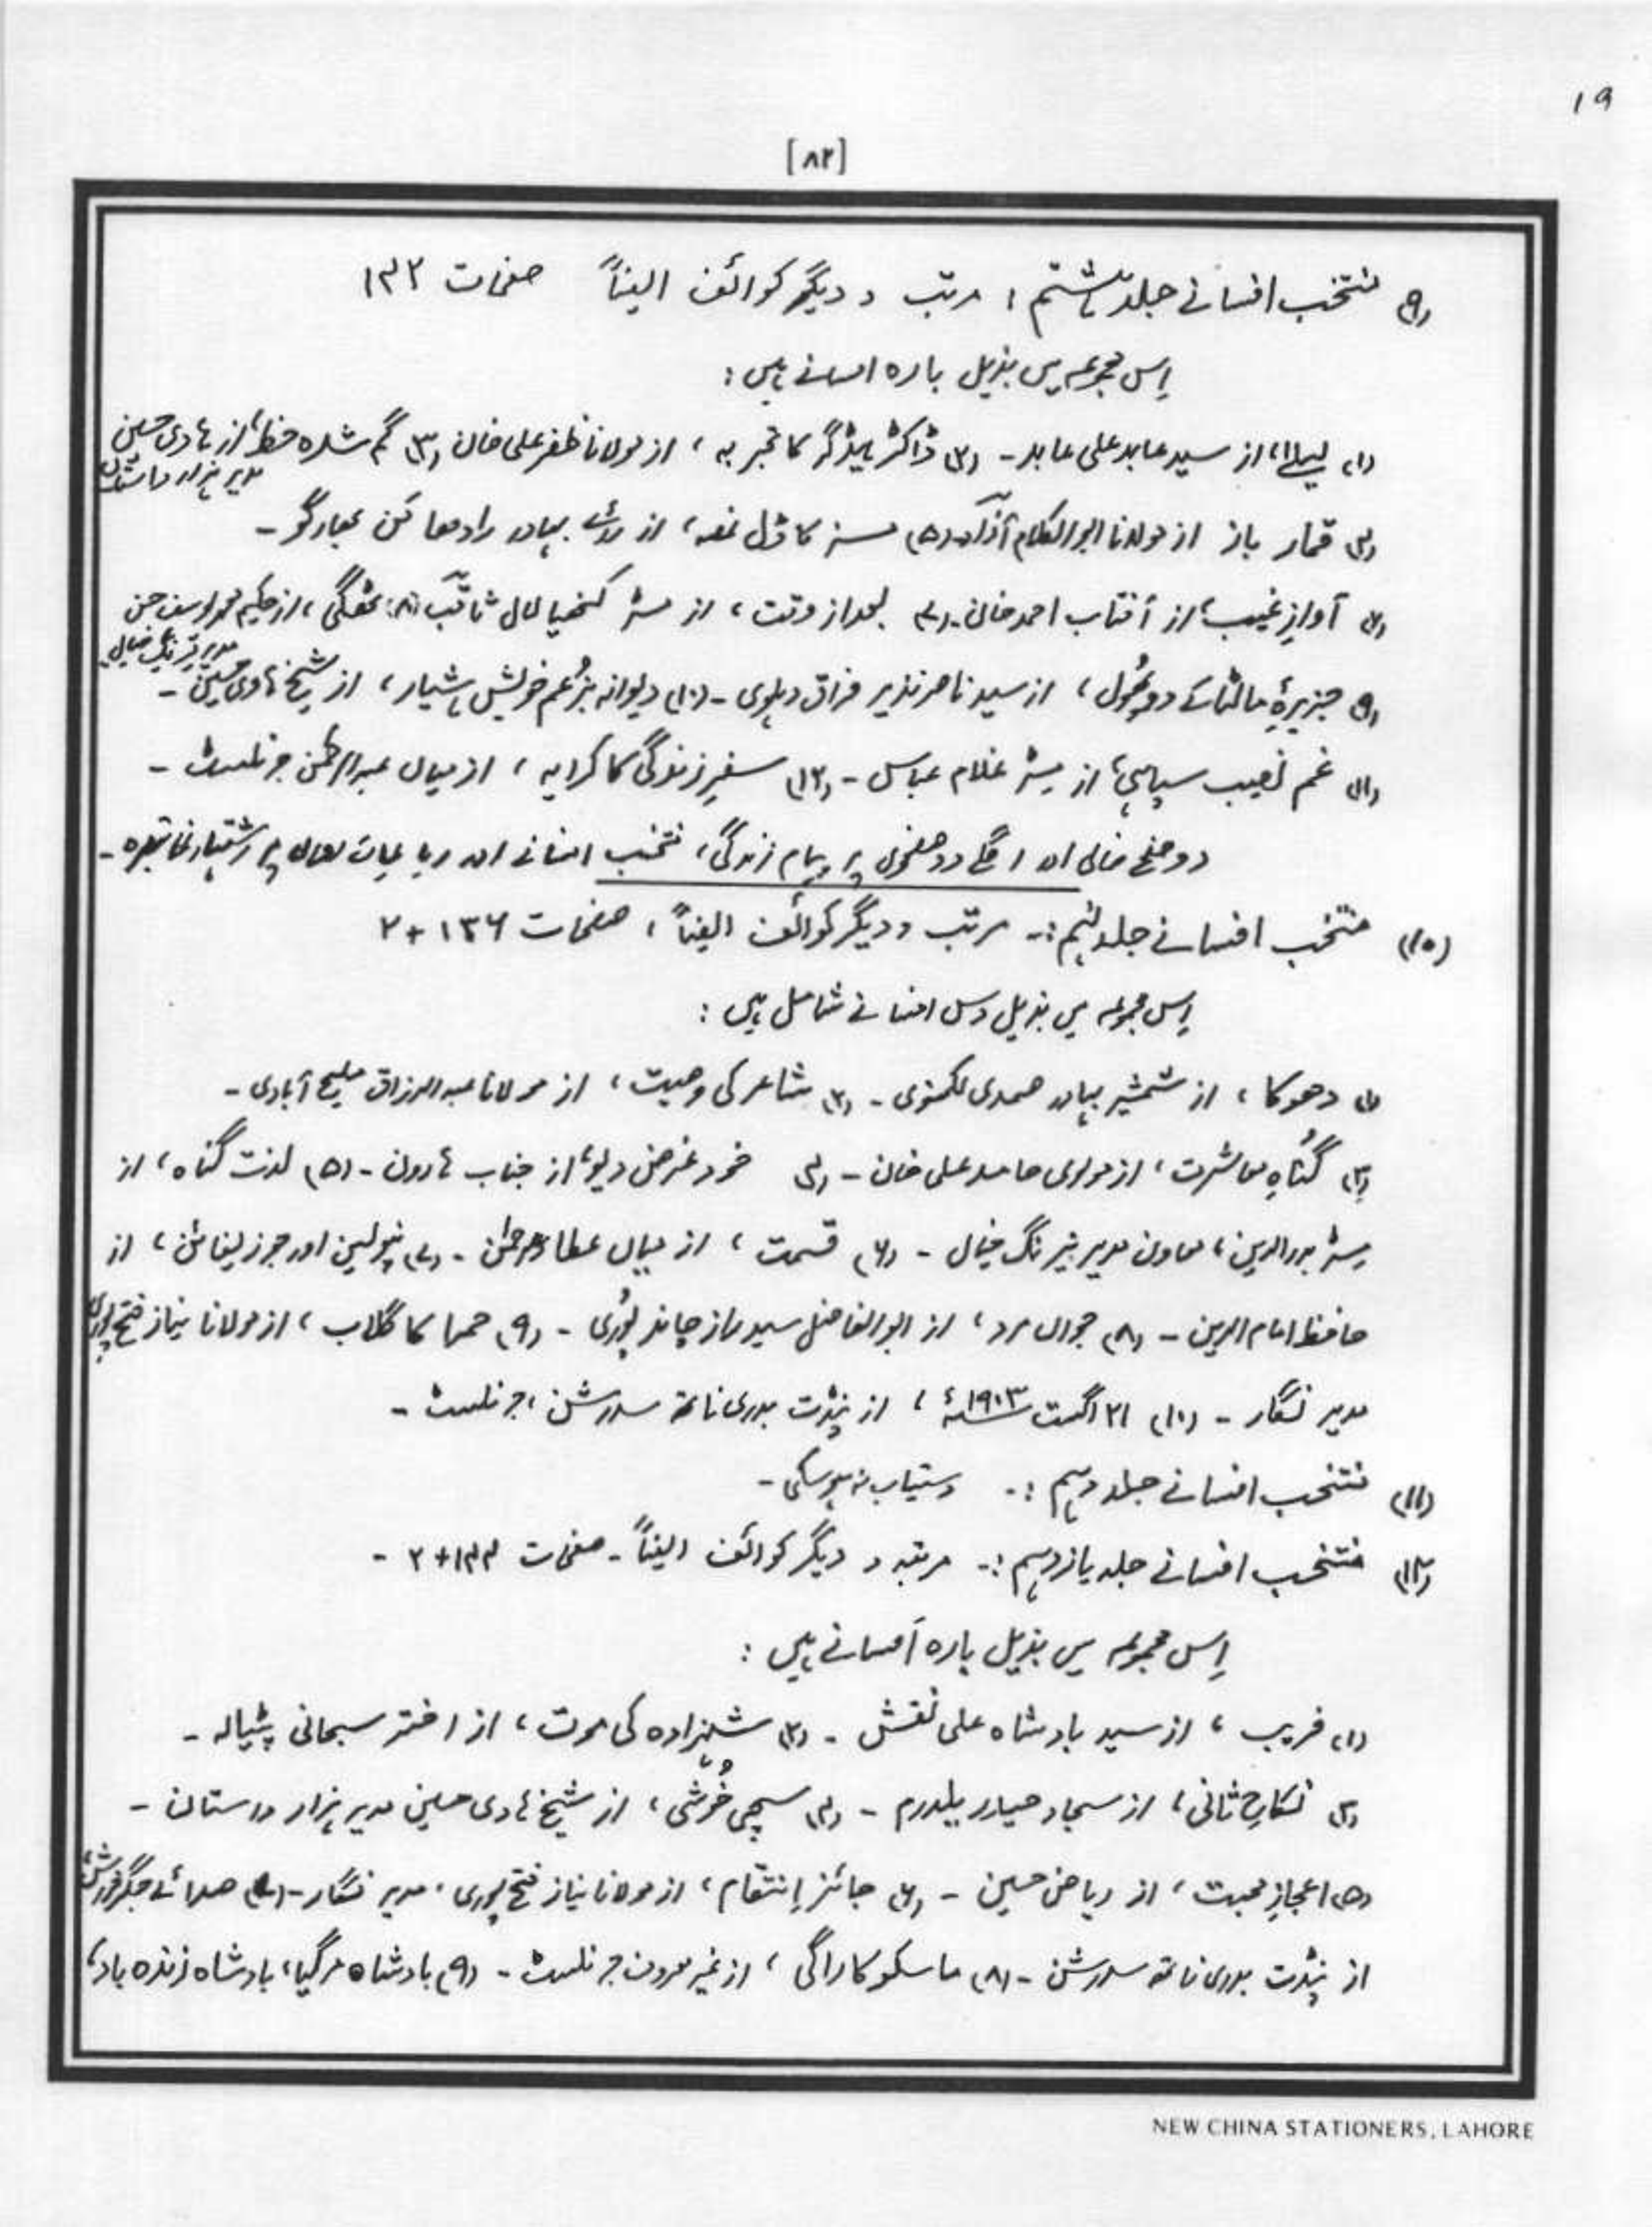 ۱۹
[۸۲]
(۹) منتخب افسانے جلد ہشتم ؛ مرتب و دیگر کوائف ایضاً صفحات ۱۳۲
اِس مجموعہ میں بذیل بارہ افسانے ہیں :
(۱) لیلےٰ، از سید عابد علی عابد۔ (۲) ڈاکٹر ہیڈگر کا تجربہ ، از مولانا ظفر علی خان (۳) گم شدہ خط، از ہادی حسین
مدیر ہزار داستان
(۴) قمار باز از مولانا ابوالکلام آزاد۔ (۵) مسز کا ڈل غصہ، از رائے بہادر رادھا کشن بھارگو۔
(۶) آوازِ غیب، از آفتاب احمد خان۔ (۷) بعد از وقت ، از مسٹر کنہیا لال ثاقب (۸) خفگی ، از حکیم محمد یوسف حسن
مدیر نیرنگ خیال
(۹) جزیرۂ مالٹا کے دو پھول ، از سید ناصر نذیر فراق دہلوی۔ (۱۰) دیوانہ بزُعم خویش ہشیار ، از شیخ ہادی حسین۔
(۱۱) غم نصیب سپاہی، از مسٹر غلام عباس۔ (۱۲) سفرِ زندگی کا کرایہ ، از میاں عبدالرحمٰن جرنلسٹ۔
دو صفحے خالی اور اگلے دو صفحوں پر پیام زندگی، منتخب افسانے اور رباعیات پر اشتہار نما تبصرہ۔
(۱۰) منتخب افسانے جلد نہم :۔ مرتب و دیگر کوائف ایضاً ، صفحات ۱۳۶ + ۲
اِس مجموعہ میں بذیل دس افسانے شامل ہیں :
(۱) دھوکا ، از شمشیر بہادر صمدی لکھنوی۔ (۲) شاعر کی وصیت ، از مولانا عبدالرزاق ملیح آبادی۔
(۳) گُناہِ معاشرت ، از مولوی حامد علی خان۔ (۴) خود غرض دیو، از جناب ہارون۔ (۵) لذت گناہ ، از
مسٹر بدرالدین ، معاون مدیر نیرنگ خیال۔ (۶) قسمت ، از میاں عطاء الرحمٰن۔ (۷) نپولین اور جوزیفائن ، از
حافظ امام الدین۔ (۸) جواں مرد ، از ابوالفاضل سید راز چاند پُوری۔ (۹) حمرا کا گلاب ، از مولانا نیاز فتح پوری
مدیر نگار۔ (۱۰) ۲۱ اگست ۱۹۰۳ئہ ، از پنڈت بدری ناتھ سدرشن ، جرنلسٹ۔
(۱۱) منتخب افسانے جلد دہم :۔ دستیاب نہ ہوسکی۔
(۱۲) منتخب افسانے جلد یازدہم :۔ مرتبہ و دیگر کوائف ایضاً۔ صفحات ۱۴۴+۲ ۔
اِس مجموعہ میں بذیل بارہ افسانے ہیں :
(۱) فریب ، از سید بادشاہ علی نقش۔ (۲) شہزادہ کی موت ، از اختر سبحانی پٹیالہ۔
(۳) نکاحِ ثانی ، از سجاد حیدر یلدرم۔ (۴) سچی خُوشی ، از شیخ ہادی حسین مدیر ہزار داستان۔
(۵) اعجازِ محبت ، از ریاض حسین۔ (۶) جائز اِنتقام ، از مولانا نیاز فتح پوری ، مدیر نگار۔ (۷) صدائے جگر خراش
از پنڈت بدری ناتھ سدرشن۔ (۸) ماسکو کا راگی ، از غیر معروف جرنلسٹ۔ (۹) بادشاہ مرگیا، بادشاہ زندہ باد،
NEW CHINA STATIONERS, LAHORE